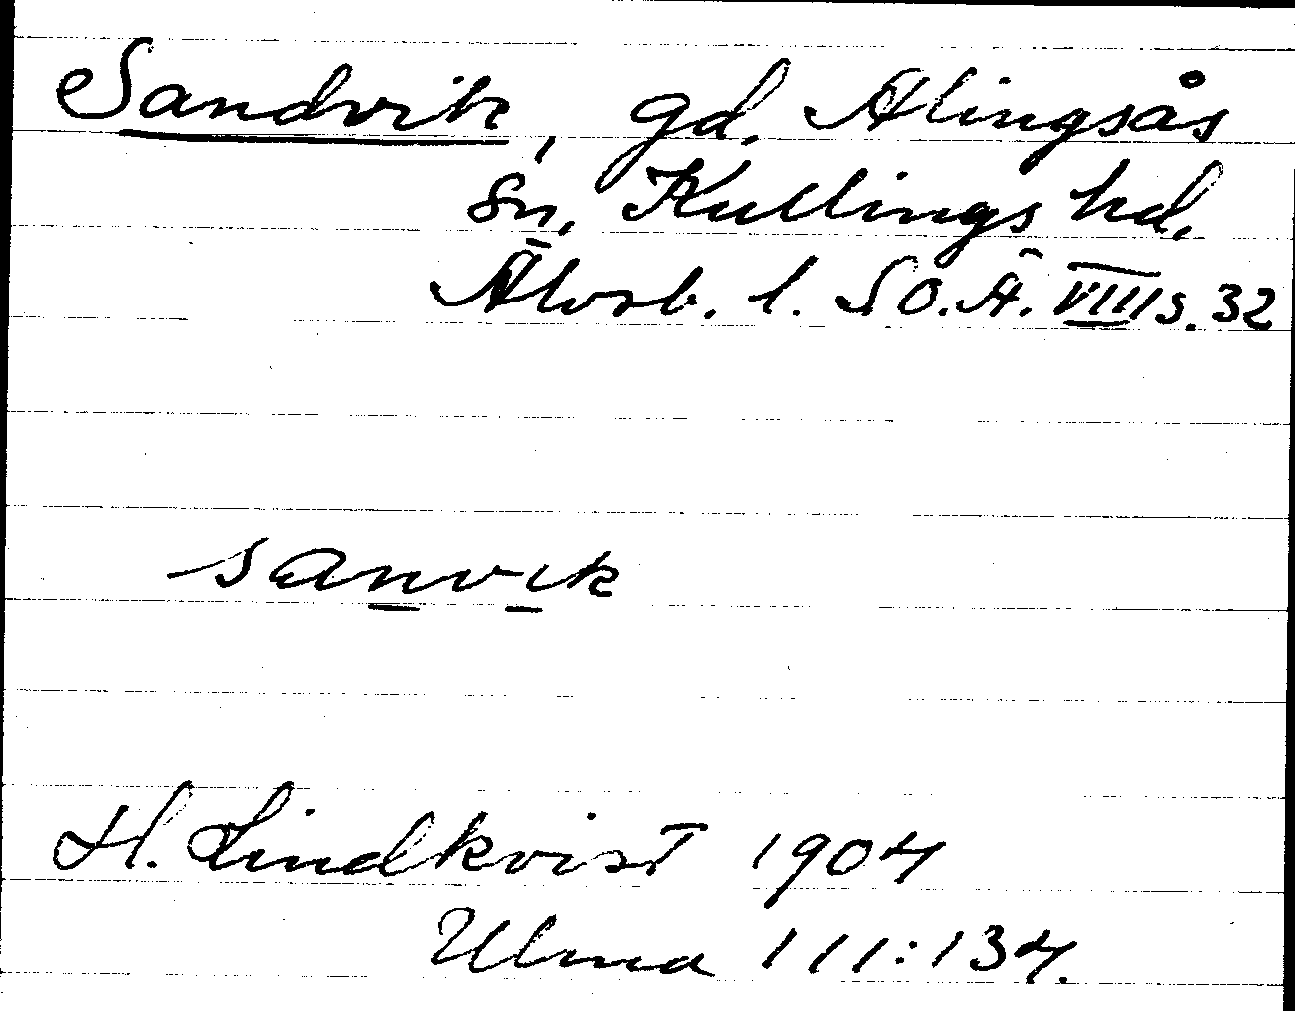 Sandvik, gd. Alingsås
sn, Kullings hd.
Älvsb. l. S O. Ä. VIII s. 32
sanvık
H. Lindkvist 1904
Ulma 111:134.